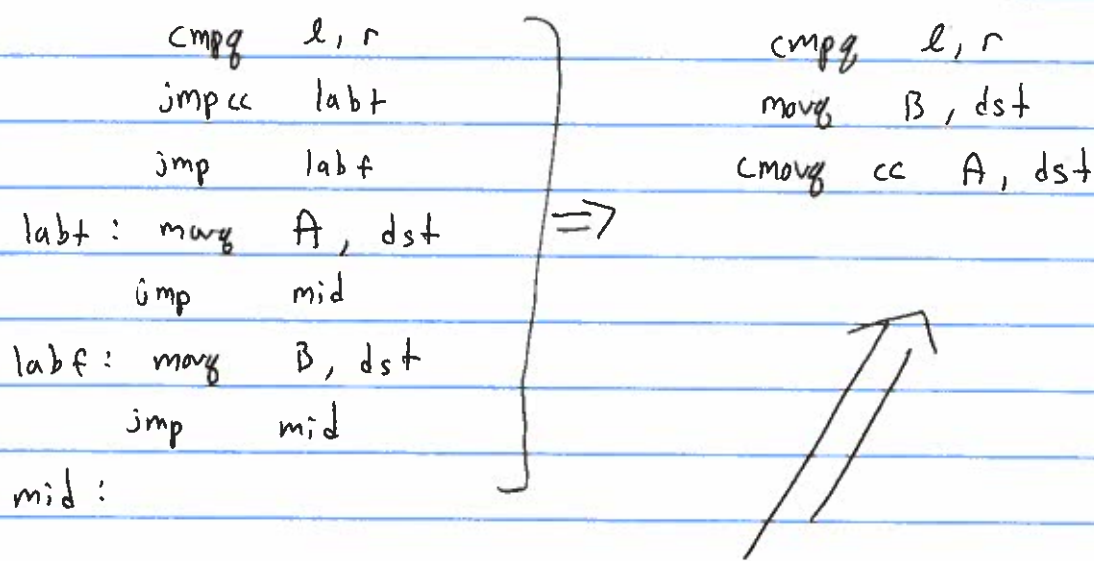 cmpq l, r
jmpcc labt
jmp labf
labt: movq A, dst
jmp mid
labf: movq B, dst
jmp mid
mid:
=>
cmpq l, r
movq B, dst
cmovq cc A, dst